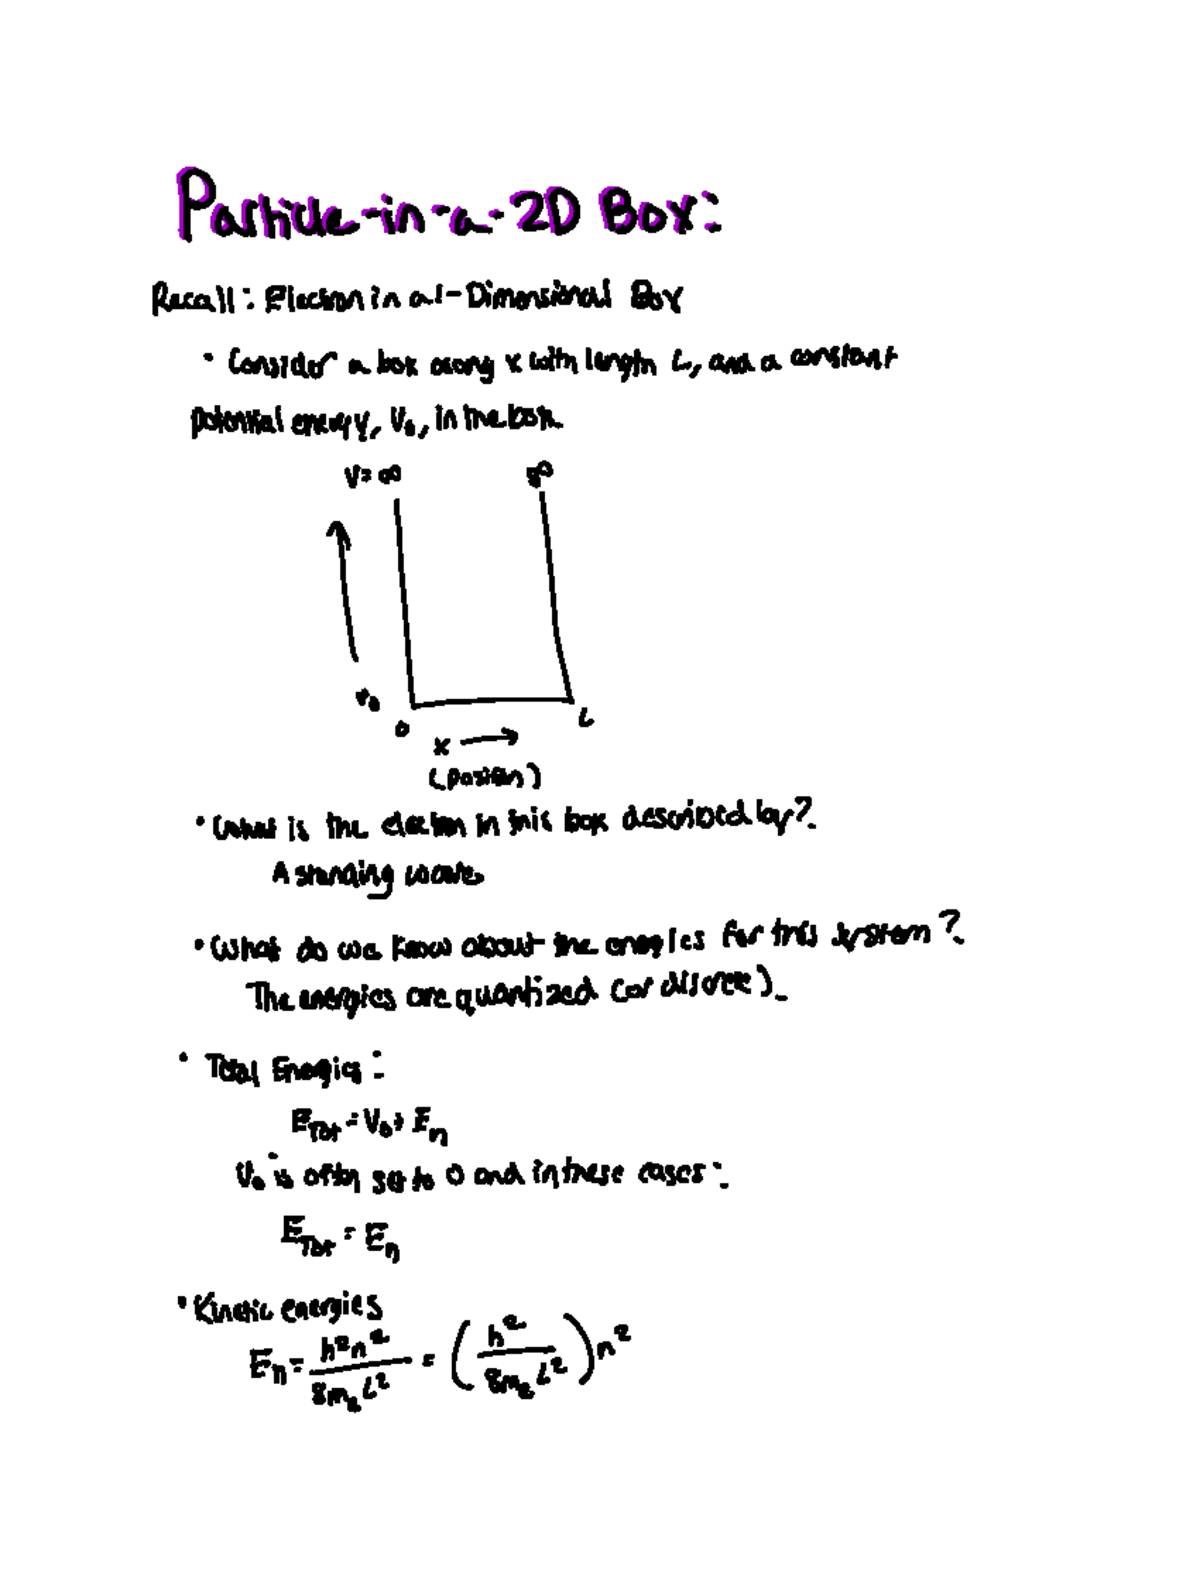 Particle-in-a-2D Box:
Recall: Electron in a 1-Dimensional Box
• Consider a box along x with length L, and a constant
potential energy, V₀, in the box.
V=∞ ∞
V₀
0 L
x →
(position)
• What is the electron in this box described by?
A standing wave
• What do we know about the energies for this system?
The energies are quantized (or discrete).
• Total Energies:
E_Tot = V₀ + E_n
V₀ is often set to 0 and in these cases:
E_Tot = E_n
• Kinetic energies
E_n = h²n²/8mₑL² = (h²/8mₑL²)n²